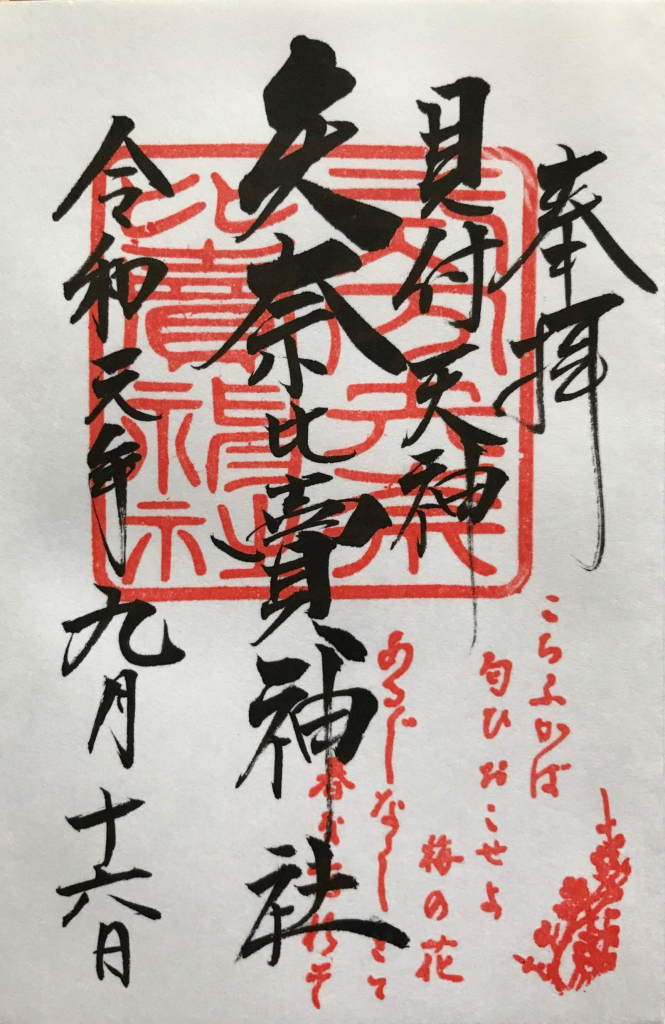 奉拝
見付天神
矢奈比賣神社
令和元年九月十六日
矢奈比賣神社
こちふかば
匂ひおこせよ
梅の花
あるじなしとて
春な忘れそ